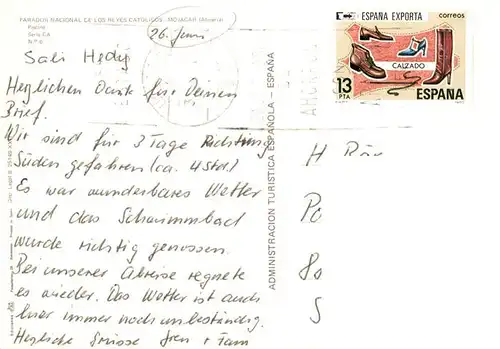 PARADOR NACIONAL DE LOS REYES CATOLICOS - MOJACAR (Almería)
Piscina
Serie CA
N.º 6
26. Juni
Sali Hedy
Herzlichen Dank für Deinen
Brief.
Wir sind für 3 Tage Richtung
Süden gefahren (ca. 4 Std.)
Es war wunderbares Wetter
und das Schwimmbad
wurde richtig genossen.
Bei unserer Abreise regnete
es wieder. Das Wetter ist auch
hier immer noch unbeständig.
Herzliche Grüsse + Fam
ADMINISTRACION TURISTICA ESPAÑOLA - ESPAÑA
ESPAÑA EXPORTA
correos
CALZADO
13
PTA
ESPAÑA
H
Po
80
S